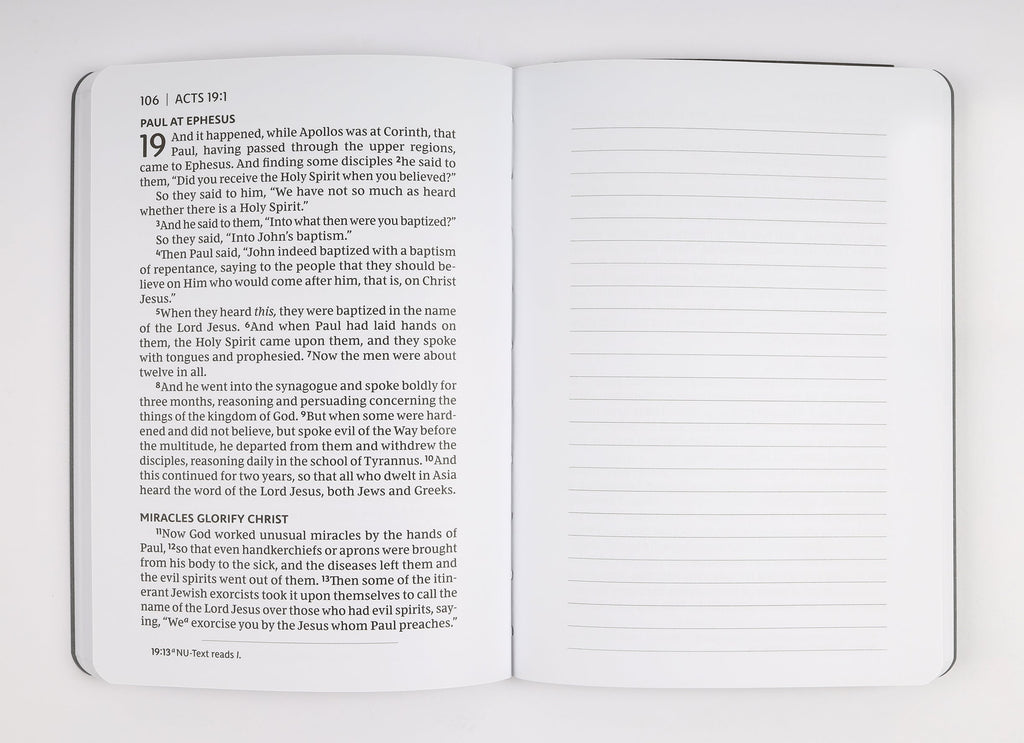 106 | ACTS 19:1
PAUL AT EPHESUS
19 And it happened, while Apollos was at Corinth, that
Paul, having passed through the upper regions,
came to Ephesus. And finding some disciples ²he said to
them, “Did you receive the Holy Spirit when you believed?”
So they said to him, “We have not so much as heard
whether there is a Holy Spirit.”
³And he said to them, “Into what then were you baptized?”
So they said, “Into John’s baptism.”
⁴Then Paul said, “John indeed baptized with a baptism
of repentance, saying to the people that they should be-
lieve on Him who would come after him, that is, on Christ
Jesus.”
⁵When they heard this, they were baptized in the name
of the Lord Jesus. ⁶And when Paul had laid hands on
them, the Holy Spirit came upon them, and they spoke
with tongues and prophesied. ⁷Now the men were about
twelve in all.
⁸And he went into the synagogue and spoke boldly for
three months, reasoning and persuading concerning the
things of the kingdom of God. ⁹But when some were hard-
ened and did not believe, but spoke evil of the Way before
the multitude, he departed from them and withdrew the
disciples, reasoning daily in the school of Tyrannus. ¹⁰And
this continued for two years, so that all who dwelt in Asia
heard the word of the Lord Jesus, both Jews and Greeks.
MIRACLES GLORIFY CHRIST
¹¹Now God worked unusual miracles by the hands of
Paul, ¹²so that even handkerchiefs or aprons were brought
from his body to the sick, and the diseases left them and
the evil spirits went out of them. ¹³Then some of the itin-
erant Jewish exorcists took it upon themselves to call the
name of the Lord Jesus over those who had evil spirits, say-
ing, “Weᵃ exorcise you by the Jesus whom Paul preaches.”
19:13 ᵃ NU-Text reads I.